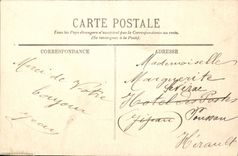 CARTE POSTALE
Tous les Pays étrangers n'acceptent pas la Correspondance au recto.
(Se renseigner à la Poste).
CORRESPONDANCE
ADRESSE
Merci de Votre
bonjour
Mademoiselle
Marguerite
Hotel des Postes
Poussan
Hérault